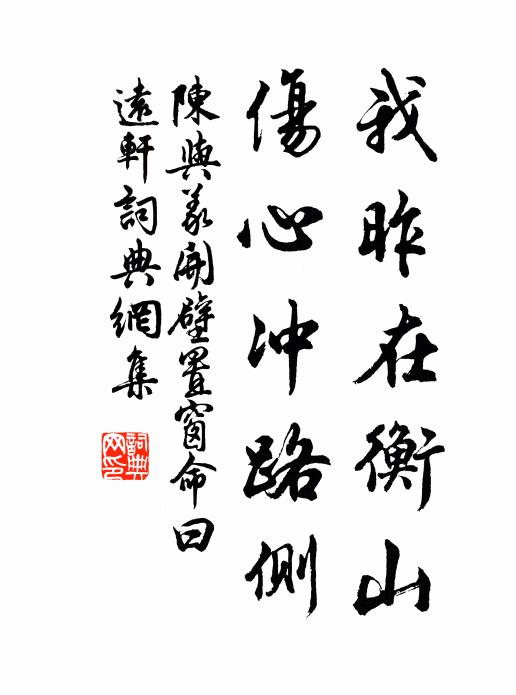 我昨在衡山
傷心冲路側
陳與義開壁置窗命曰
遠軒詞典網集
詞典网印